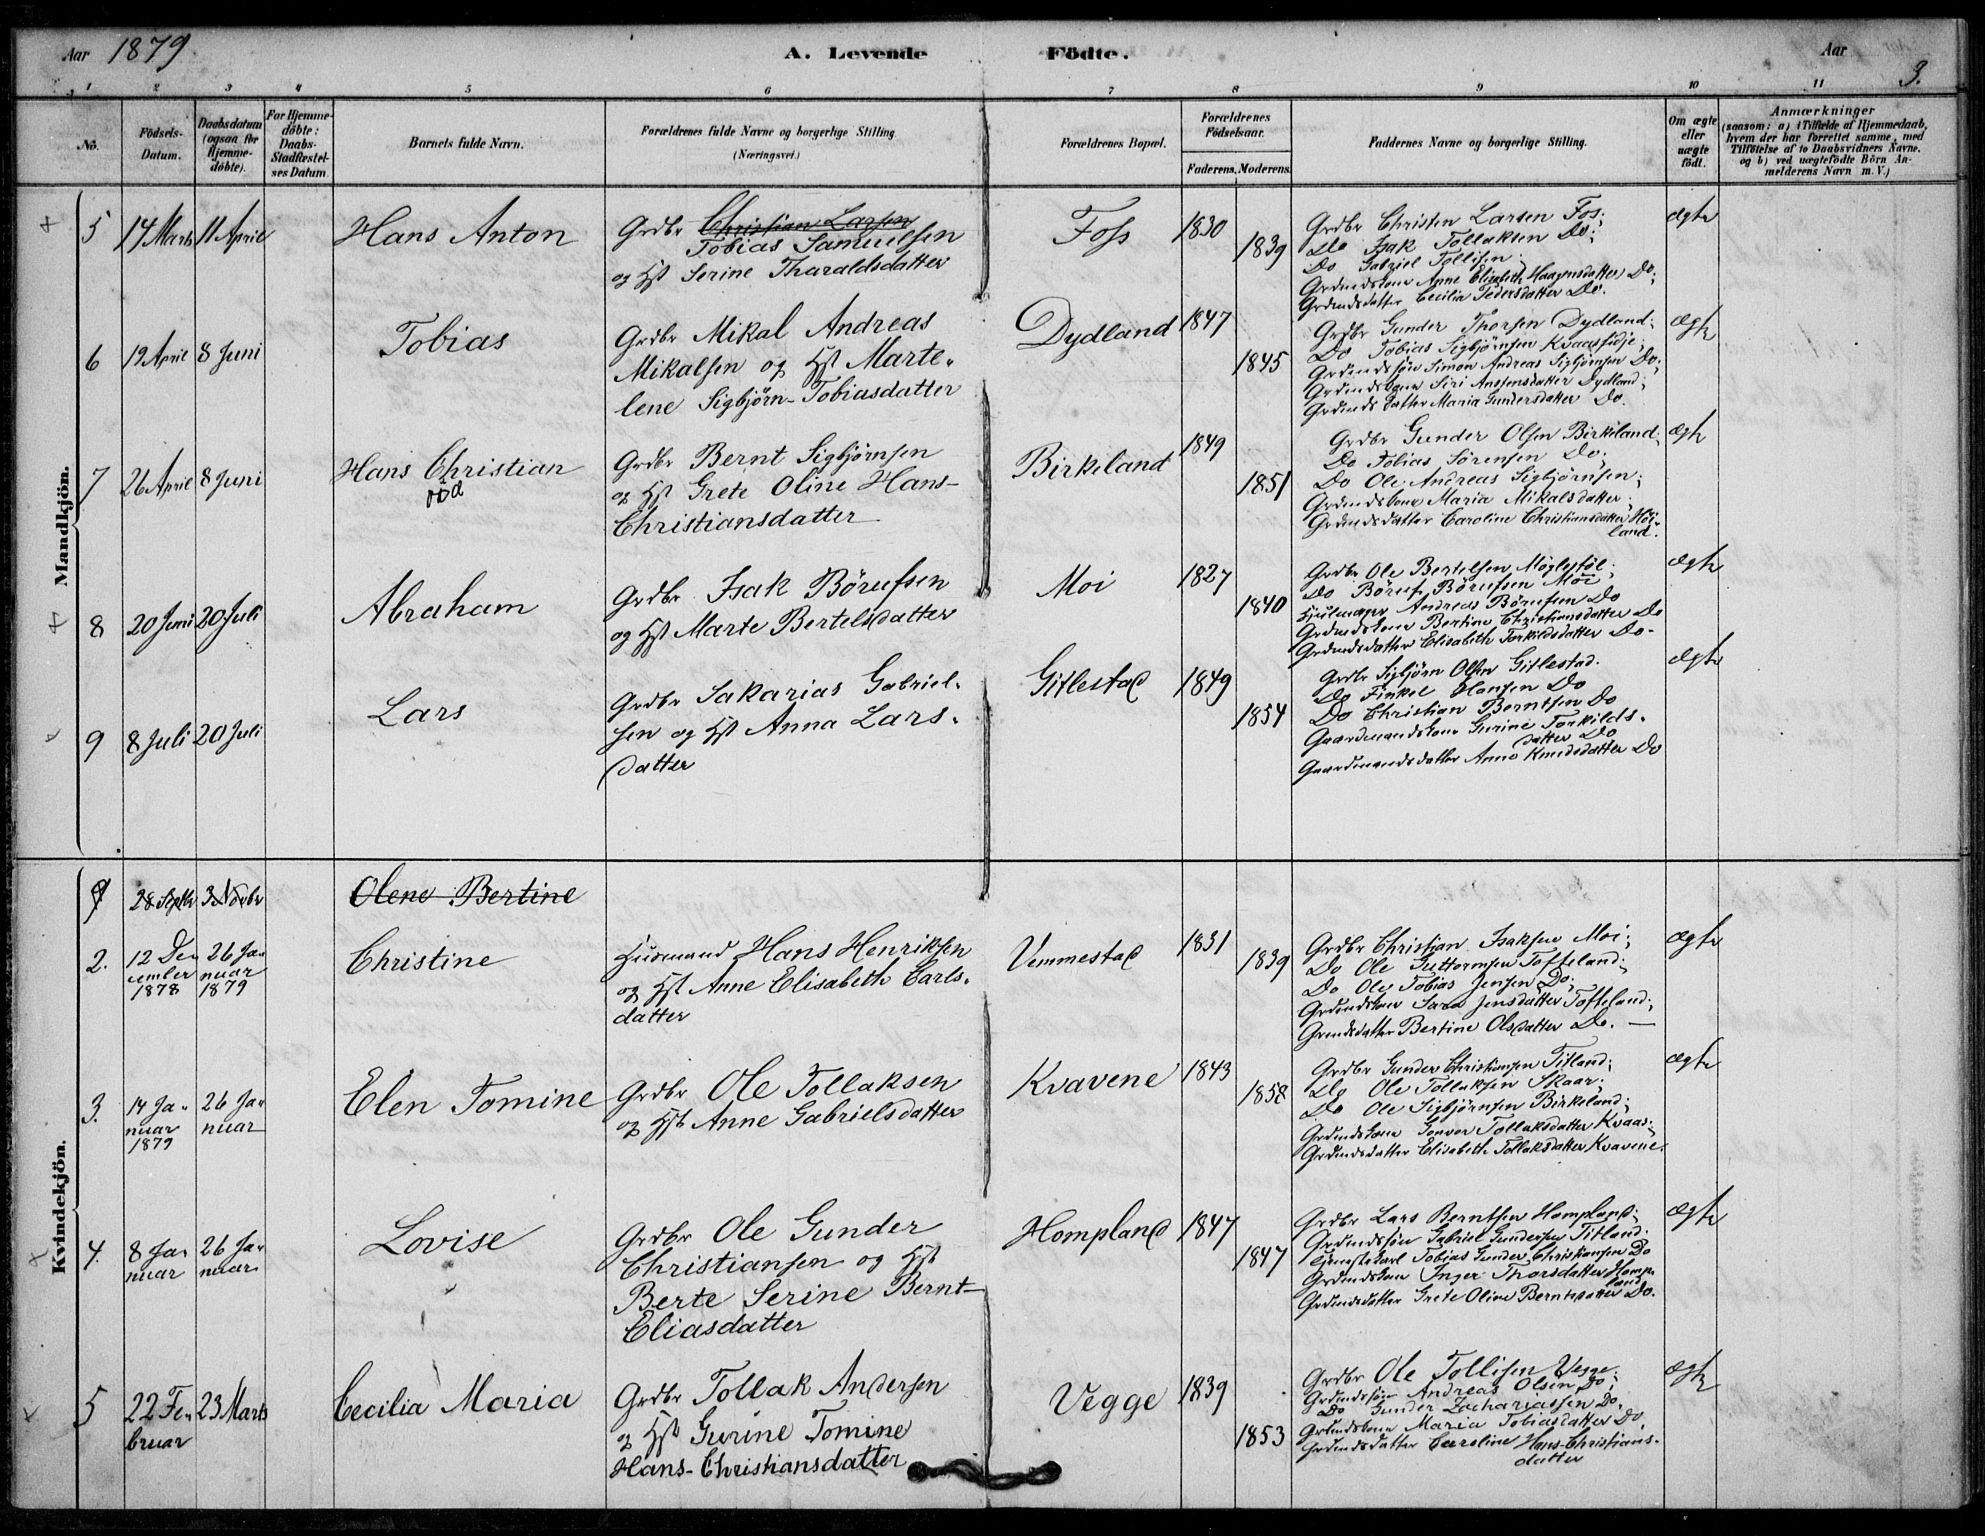 Aar 1879 A. Levende Födte. Aar 3.
1 2 3 4 5 6 7 8 9 10 11
No.
Födsels-Datum.
Daabsdatum (ogsaa for Hjemmedöbte).
For Hjemmedöbte: Daabs-Stadfæstelses Datum
Barnets fulde Navn.
Forældrenes fulde Navne og borgerlige Stilling (Næringsvei.)
Forældrenes Bopæl.
Forældrenes Födselsaar.
Faderens. Moderens.
Faddernes Navne og borgerlige Stilling.
Om ægte eller uægte födt.
Anmærkninger
(saasom: a) i Tilfælde af Hjemmedaab, hvem der har forrettet samme, med Tilföielse af to Daabsvidners Navne, og b) ved uægtefödte Börn Anmelderens Navn m. V.)
Mandkjön.
5 14 Marts 11 April Hans Anton
Grdbr Christian Larsen
Tobias Samuelsen
og Hst Serine Tharaldsdatter
Foss 1830 1839
Grdbr Christen Larsen Fos;
Do Isak Tollaksen Do;
Do Gabriel Tollisen
Grdmdskone Anne Elisabeth Haagensdatter Do;
Grdmdsdatter Cecilia Pedersdatter Do.
ægte
6 19 April 8 Juni Tobias
Grdbr Mikal Andreas
Mikalsen og Hst Marte-
lene Sigbjörn-Tobiasdatter
Dydland 1847 1845
Grdbr Gunder Thorsen Dydland;
Do Tobias Sigbjørnsen Kvaasfidje;
Grdmdssön Simon Andreas Sigbjørnsen Do;
Grdmdskone Siri Anssensdatter Dydland;
Grdmdsdatter Maria Gundersdatter Do.
Ægte
7 26 April 8 Juni Hans Christian
Grdbr Bernt Sigbjørnsen
og Hst Grete Oline Hans-
Christiansdatter
Birkeland 1849 1851
Grdbr Gunder Olsen Birkeland;
Do Tobias Sörensen Do;
Do Ole Andreas Sigbjørnsen;
Grdmdskone Maria Mikalsdatter;
Grdmdsdatter Caroline Christiansdatter Høi-
land.
Ægte
8 20 Juni 20 Juli Abraham
Grdbr Isak Börufsen
og Hst Marte Bertelsdatter
Moi 1827 1840
Grdbr Ole Bertelsen Möglestöl;
Do Böruf Börufsen Moi
Hjulmager Andreas Börufsen Do
Grdmdskone Bertine Christiansdatter Do
Grdmdsdatter Elisabeth Torkildsdatter Do.
Ægte
9 8 Juli 20 Juli Lars
Grdbr Sakarias Gabriel-
sen og Hst Anna Lars-
datter
Gitlestad 1849 1854
Grdbr Sigbjörn Olsen Gitlestad.
Do Finkel Hansen Do
Do Christian Berntsen Do
Gaardmandskone Gurine Torkilds-
datter Do
Gaardmandsdatter Anne Knudsdatter Do
Ægte
Kvindekjön.
1 28 Septbr 3 Novbr Olene Bertine
2. 12 De-
cember
1878
26 Ja-
nuar
1879
Christine
Husmand Hans Henriksen
og Hst Anne Elisabeth Carls-
datter
Vemmestad 1831 1839
Grdbr Christian Isaksen Moi;
Do Ole Guttormsen Tofteland;
Do Ole Tobias Jensen Do;
Grdmdskone Sara Jensdatter Tofteland;
Grmdsdatter Bertine Olsdatter Do.
Ægte
3. 14 Ja-
nuar
1879
26 Ja-
nuar
Elen Tomine
Grdbr Ole Tollaksen
og Hst Anne Gabrielsdatter
Kvavene 1843 1858
Grdbr Gunder Christiansen Titland;
Do Ole Tollaksen Skaar;
Do Ole Sigbjørnsen Birkeland;
Grdmdskone Gonvor Tollaksdatter Kvaas;
Grdmdsdatter Elisabeth Tollaksdatter Kvavene.
Ægte
4. 8 Ja-
nuar
26 Ja-
nuar
Lovise
Grdbr Ole Gunder
Christiansen og Hst
Berte Serine Bernt-
Eliasdatter
Hompland 1847 1847
Grdbr Lars Berntsen Hompland;
Grdmdssön Gabriel Gundersen Titland.
Tjenestekarl Tobias Gunder Christiansen Do
Grdmdskone Inger Thorsdatter Homp-
land
Grdmdsdatter Grete Oline Berntsdatter Do.
Ægte
5 22 Fe-
bruar
23 Marts
Cecilia Maria
Grdbr Tollak Andersen
og Hst Gurine Tomine
Hans-Christiansdatter
Vegge 1839 1853
Grdbr Ole Tollisen Vegge;
Grdmdssön Andreas Olsen Do;
Do Gunder Zachariassen Do.
Grdmdskone Maria Tobiasdatter Do.
Grdmdsdatter Caroline Hans-Christians-
datter
Ægte